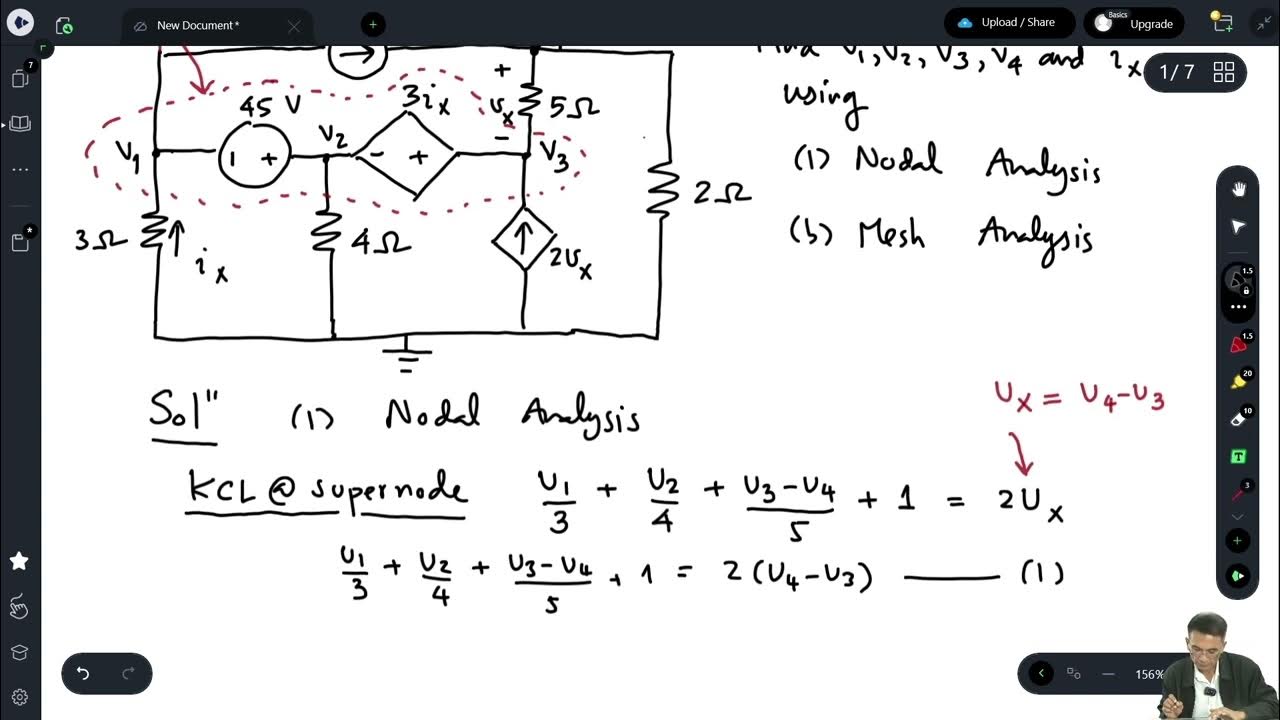 New Document*
Upload / Share
Basics
Upgrade
1 / 7
7
v1, v2, v3, v4 and ix
using
(1) Nodal Analysis
(b) Mesh Analysis
45 V
3ix
+
vx
-
5Ω
V1
+
V2
-
+
V3
2Ω
3Ω
ix
4Ω
2vx
Sol"
(1) Nodal Analysis
vx = v4-v3
KCL @ supernode v1/3 + v2/4 + (v3-v4)/5 + 1 = 2vx
v1/3 + v2/4 + (v3-v4)/5 + 1 = 2(v4-v3) —— (1)
1.5
1.5
20
10
T
3
156%